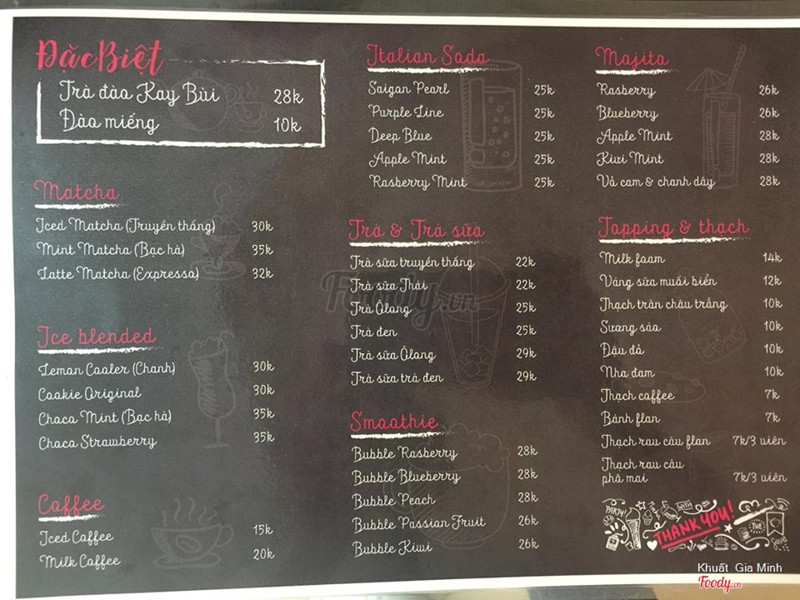 Đặc Biệt
Trà đào Kay Bùi 28k
Đào miếng 10k
Matcha
Iced Matcha (Truyền thống) 30k
Mint Matcha (Bạc hà) 35k
Latte Matcha (Expresso) 32k
Ice blended
Lemon Cooler (Chanh) 30k
Cookie Original 30k
Choco Mint (Bạc hà) 35k
Choco Strawberry 35k
Coffee
Iced Coffee 15k
Milk Coffee 20k
Italian Soda
Saigon Pearl 25k
Purple Line 25k
Deep Blue 25k
Apple Mint 25k
Rasberry Mint 25k
Trà & Trà sữa
Trà sữa truyền thống 22k
Trà sữa Thái 22k
Trà Ôlong 25k
Trà đen 25k
Trà sữa Ôlong 29k
Trà sữa trà đen 29k
Smoothie
Bubble Rasberry 28k
Bubble Blueberry 28k
Bubble Peach 28k
Bubble Passion Fruit 26k
Bubble Kiwi 26k
Mojito
Rasberry 26k
Blueberry 26k
Apple Mint 28k
Kiwi Mint 28k
Vỏ cam & chanh dây 28k
Topping & thạch
Milk foam 14k
Váng sữa muối biển 12k
Thạch trân châu trắng 10k
Sương sáo 10k
Đậu đỏ 10k
Nha đam 10k
Thạch coffee 7k
Bánh flan 7k
Thạch rau câu flan 7k/3 viên
Thạch rau câu
phô mai 7k/3 viên
THANK YOU!
Foody.vn
Khuất Gia Minh
Foody.vn